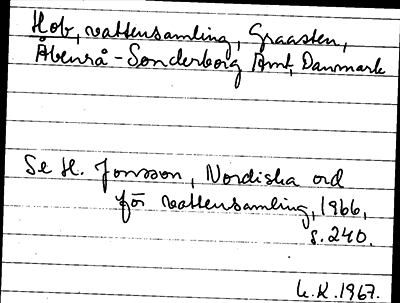 Hob, vattensamling, Graasten,
Åbenrå-Sonderborg Amt, Danmark
Se H. Jonsson, Nordiska ord
för vattensamling, 1966,
s. 240.
L.K. 1967.